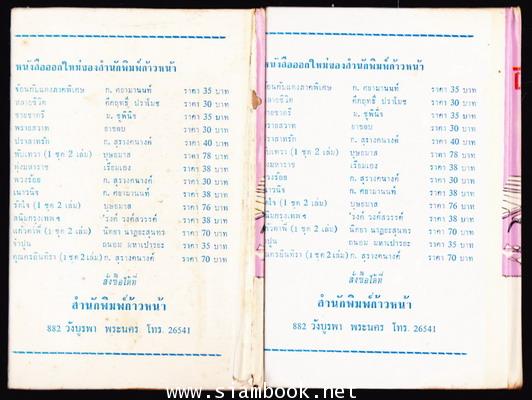 หนังสือออกใหม่ของสำนักพิมพ์ก้าวหน้า
ช้อนกับแดงภาคพิเศษ ก. ศยามานนท์ ราคา 35 บาท
หลายชีวิต คึกฤทธิ์ ปราโมช ราคา 30 บาท
ชายชาตรี ม. ชูพินิจ ราคา 35 บาท
พรายสวาท อายอบ ราคา 30 บาท
ปราสาทรัก ก. สุรางคนางค์ ราคา 40 บาท
ทับเทวา (1 ชุด 2 เล่ม) บุษยมาส ราคา 78 บาท
คุ้งมหาราช เรียมเอง ราคา 38 บาท
พวงร้อย ก. สุรางคนางค์ ราคา 30 บาท
เนาวนิจ ก. ศยามานนท์ ราคา 38 บาท
รักใจ (1 ชุด 2 เล่ม) บุษยมาส ราคา 76 บาท
สนิมกรุงเทพ ฯ 'รงค์ วงศ์สวรรค์ ราคา 38 บาท
(1 ชุด 2 เล่ม) นิตยา นาฏยะสุนทร ราคา 70 บาท
จำปูน ถนอม มหาเปารยะ ราคา 35 บาท
คุณครูอินทิรา (1 ชุด 2 เล่ม) ก. สุรางคนางค์ ราคา 70 บาท
สั่งซื้อได้ที่
สำนักพิมพ์ก้าวหน้า
882 วังบูรพา พระนคร โทร. 26541
หนังสือออกใหม่ของสำนักพิมพ์ก้าวหน้า
ช้อนกับแดงภาคพิเศษ ก. ศยามานนท์ ราคา 35 บาท
หลายชีวิต คึกฤทธิ์ ปราโมช ราคา 30 บาท
ชายชาตรี ม. ชูพินิจ ราคา 35 บาท
พรายสวาท อายอบ ราคา 30 บาท
ปราสาทรัก ก. สุรางคนางค์ ราคา 40 บาท
ทับเทวา (1 ชุด 2 เล่ม) บุษยมาส ราคา 78 บาท
คุ้งมหาราช เรียมเอง ราคา 38 บาท
พวงร้อย ก. สุรางคนางค์ ราคา 30 บาท
เนาวนิจ ก. ศยามานนท์ ราคา 38 บาท
รักใจ (1 ชุด 2 เล่ม) บุษยมาส ราคา 76 บาท
สนิมกรุงเทพ ฯ 'รงค์ วงศ์สวรรค์ ราคา 38 บาท
(1 ชุด 2 เล่ม) นิตยา นาฏยะสุนทร ราคา 70 บาท
จำปูน ถนอม มหาเปารยะ ราคา 35 บาท
คุณครูอินทิรา (1 ชุด 2 เล่ม) ก. สุรางคนางค์ ราคา 70 บาท
สั่งซื้อได้ที่
สำนักพิมพ์ก้าวหน้า
882 วังบูรพา พระนคร โทร. 26541
www.siambook.net